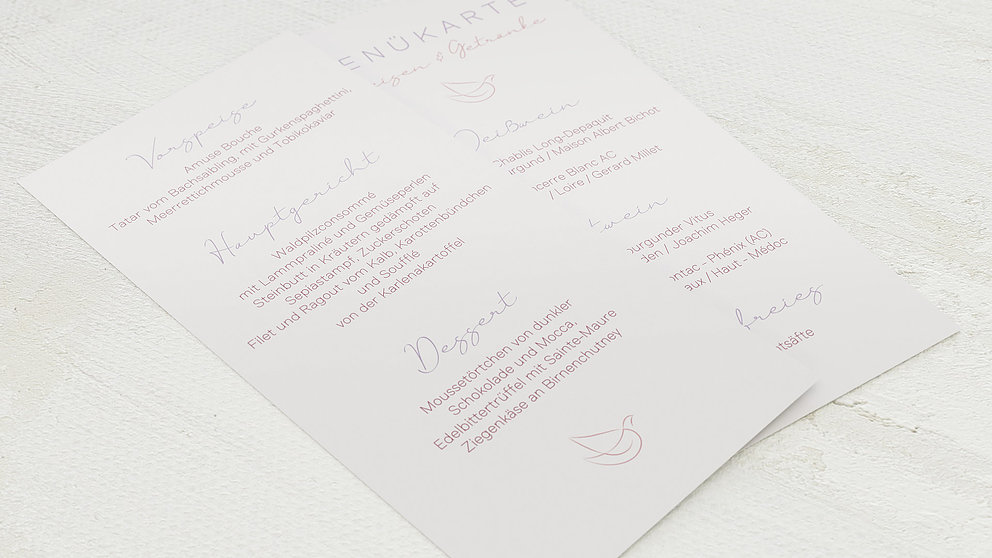 Vorspeise
Amuse Bouche
Tatar vom Bachsaibling, mit Gurkenspaghettini,
Meerrettichmousse und Tobikokaviar
Hauptgericht
Waldpilzconsommé
mit Lammpraliné und Gemüseperlen
Steinbutt in Kräutern gedämpft auf
Sepiastampf, Zuckerschoten
Filet und Ragout vom Kalb, Karottenbündchen
und Soufflé
von der Karlenakartoffel
Dessert
Moussetörtchen von dunkler
Schokolade und Mocca,
Edelbittertrüffel mit Sainte-Maure
Ziegenkäse an Birnenchutney
ENÜKARTE
eisen & Getränke
Weißwein
Chablis Long-Depaquit
urgund / Maison Albert Bichot
ncerre Blanc AC
/ Loire / Gerard Millet
twein
urgunder Vitus
den / Joachim Heger
ontac - Phénix (AC)
aux / Haut - Médoc
freies
tsäfte